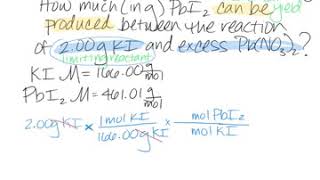 How much (in g) PbI₂ can be yield
produced between the reaction
of 2.00g KI and excess Pb(NO₃)₂?
limiting reactant
KI M = 166.00 g/mol
PbI₂ M = 461.01 g/mol
2.00g KI × 1 mol KI / 166.00 g KI × mol PbI₂ / mol KI